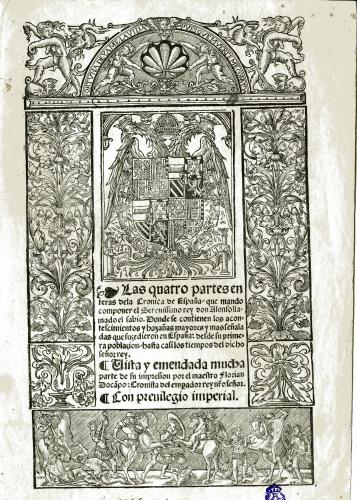 Las quatro partes en
teras dela Cronica de España· que mando
componer el Serenissimo rey don Alonsolla
mado el sabio. Donde se contienen los acon
tescimientos y hazañas mayores y mas señala
das que sucedieron en España: desde su prime
ra poblacion· hasta casi los tiempos del dicho
señor rey.
Uista y emendada mucha
parte de su impresion por el maestro Florian
Docãpo: Cronista del emperador rey nřo señor.
Con preuilegio imperial.